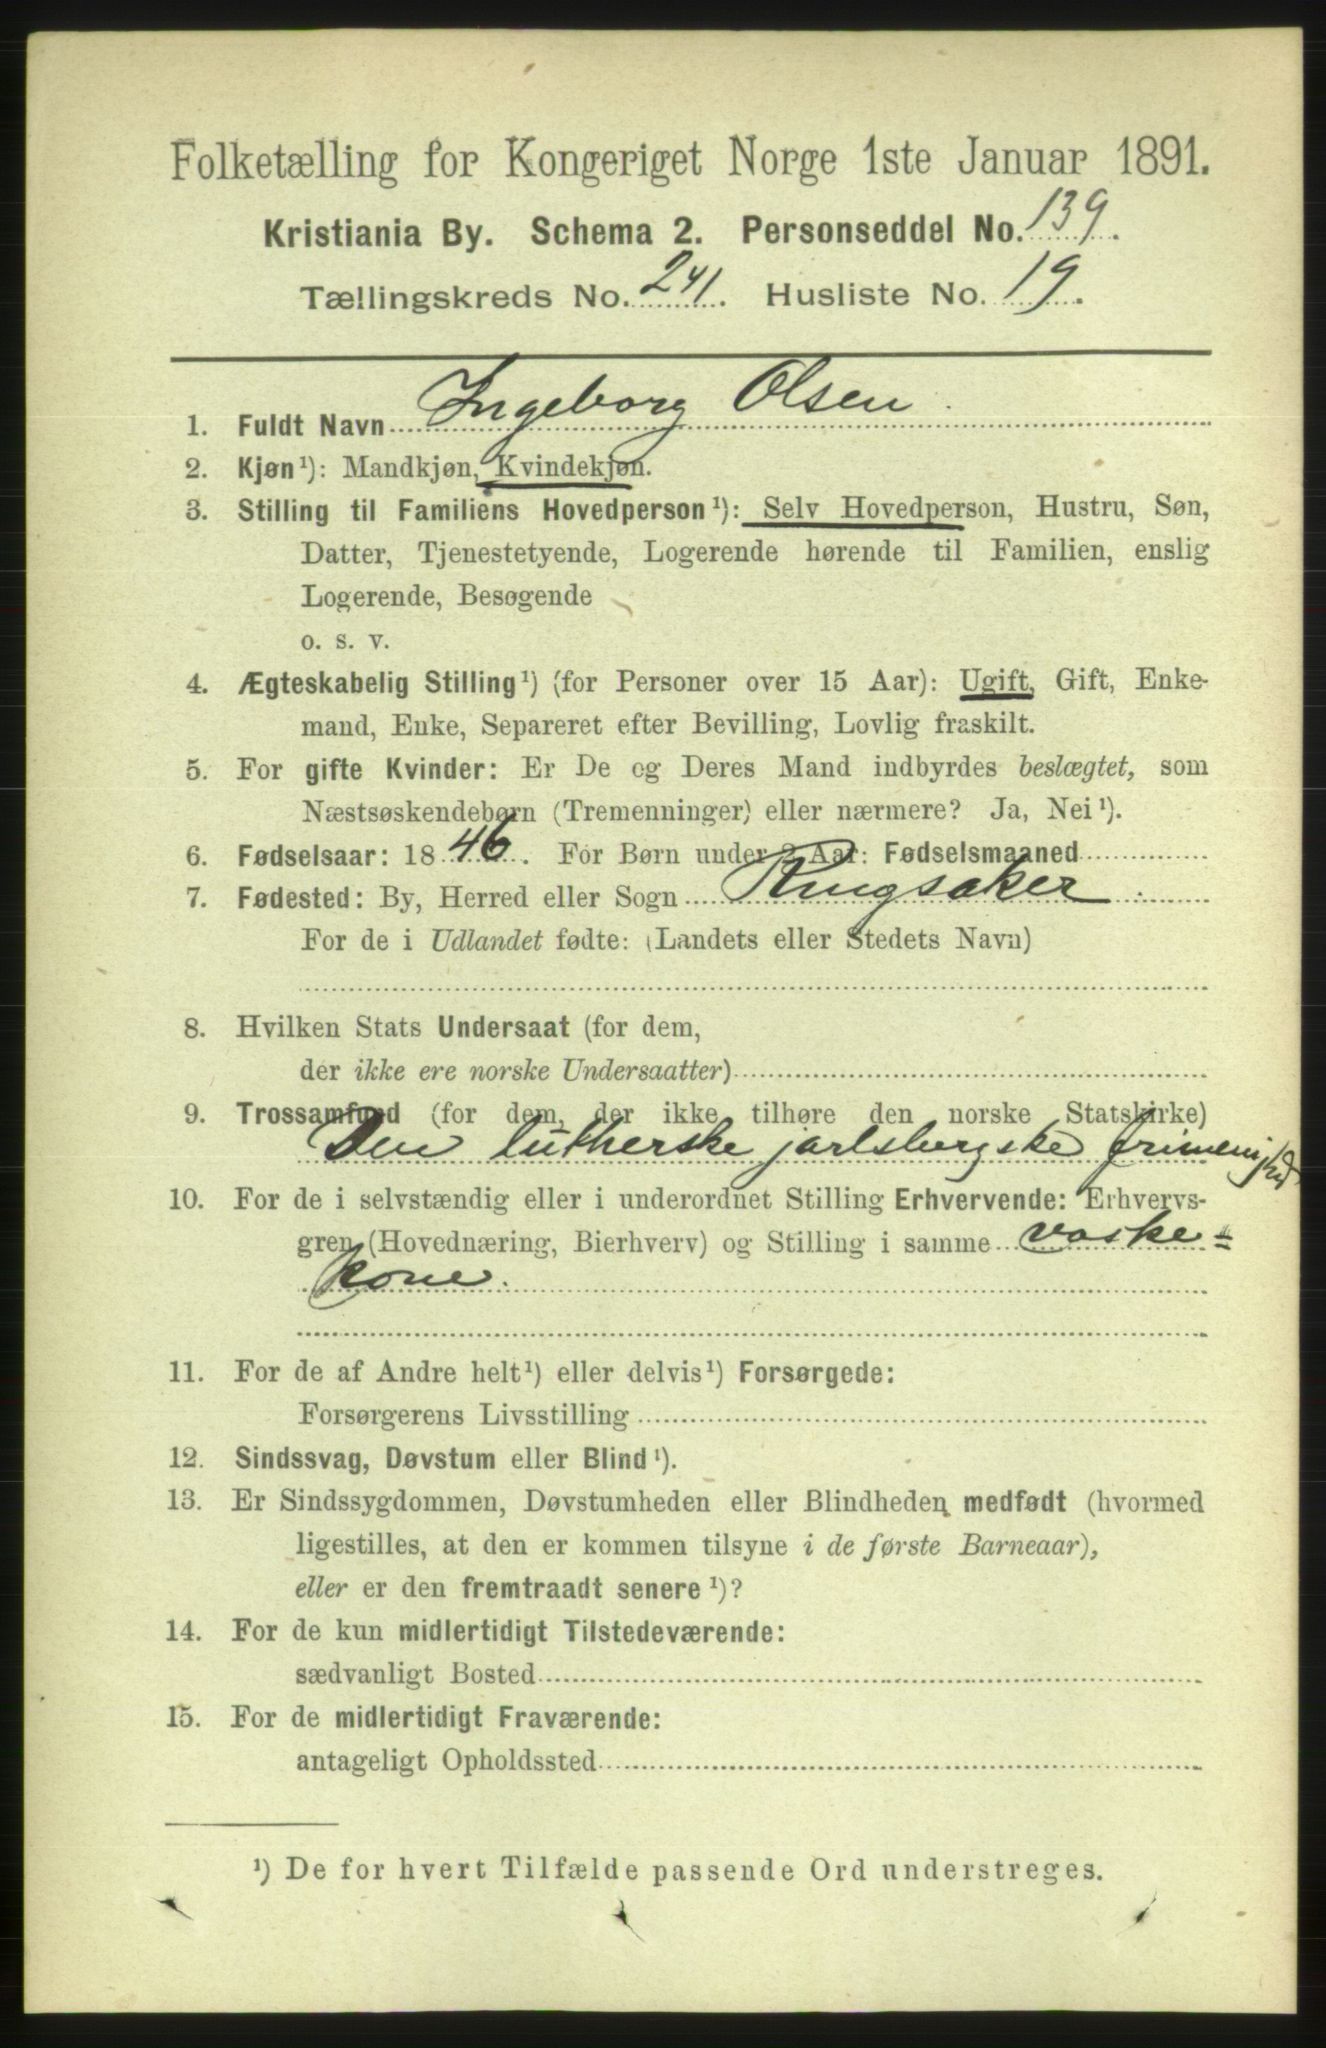 Folketælling for Kongeriget Norge 1ste Januar 1891.
Kristiania By. Schema 2. Personseddel No. 139.
Tællingskreds No. 241. Husliste No. 19.
1. Fuldt Navn Ingeborg Olsen.
2. Kjøn¹): Mandkjøn, Kvindekjøn.
3. Stilling til Familiens Hovedperson¹): Selv Hovedperson, Hustru, Søn,
Datter, Tjenestetyende, Logerende hørende til Familien, enslig
Logerende, Besøgende
o. s. v.
4. Ægteskabelig Stilling¹) (for Personer over 15 Aar): Ugift, Gift, Enke-
mand, Enke, Separeret efter Bevilling, Lovlig fraskilt.
5. For gifte Kvinder: Er De og Deres Mand indbyrdes beslægtet, som
Næstsøskendebørn (Tremenninger) eller nærmere? Ja, Nei¹).
6. Fødselsaar: 1846. For Børn under 2 Aar: Fødselsmaaned
7. Fødested: By, Herred eller Sogn Ringsaker
For de i Udlandet fødte: (Landets eller Stedets Navn)
8. Hvilken Stats Undersaat (for dem,
der ikke ere norske Undersaatter)
9. Trossamfund (for dem, der ikke tilhøre den norske Statskirke)
Den lutherske jarlsbergske frimenighed
10. For de i selvstændig eller i underordnet Stilling Erhvervende: Erhvervs-
gren (Hovednæring, Bierhverv) og Stilling i samme vaske=
kone.
11. For de af Andre helt¹) eller delvis¹) Forsørgede:
Forsørgerens Livsstilling
12. Sindssvag, Døvstum eller Blind¹).
13. Er Sindssygdommen, Døvstumheden eller Blindheden medfødt (hvormed
ligestilles, at den er kommen tilsyne i de første Barneaar),
eller er den fremtraadt senere¹)?
14. For de kun midlertidigt Tilstedeværende:
sædvanligt Bosted
15. For de midlertidigt Fraværende:
antageligt Opholdssted
¹) De for hvert Tilfælde passende Ord understreges.